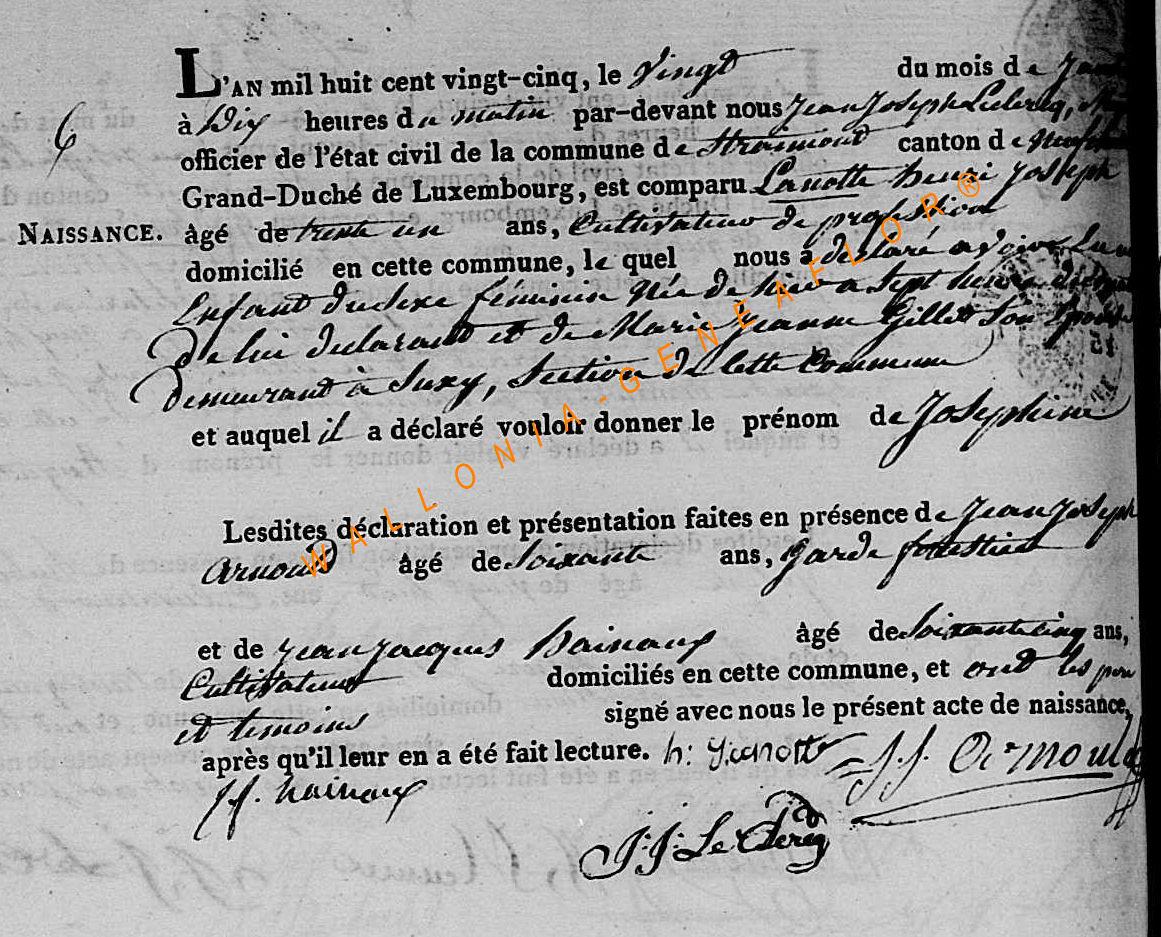 L'AN mil huit cent vingt-cinq, le Vingt du mois de
à Dix heures du matin par-devant nous Jean Joseph Leclercq,
officier de l'état civil de la commune de Straimont canton de
Grand-Duché de Luxembourg, est comparu Lanotte henri Joseph
6
NAISSANCE. âgé de trente un ans, Cultivateur de profession
domicilié en cette commune, le quel nous a déclaré
Enfant du sexe féminin Née de hier a sept heures
De lui declarant et de Marie Jeanne Gillet Son
Demeurant à Suxy, Section de Cette Commune
et auquel il a déclaré vouloir donner le prénom de Josephine
Lesdites déclaration et présentation faites en présence de Jean Joseph
Arnould âgé de Soixante ans, Garde forestier
et de Jean Jacques hainaux âgé de Soixante cinq ans,
Cultivateur domiciliés en cette commune, et ont les
et temoins signé avec nous le présent acte de naissance,
après qu'il leur en a été fait lecture. h: J. J. Arnould
J J. hainaux
J: J: Le Clercq
WALLONIA-GENEAFLOR®